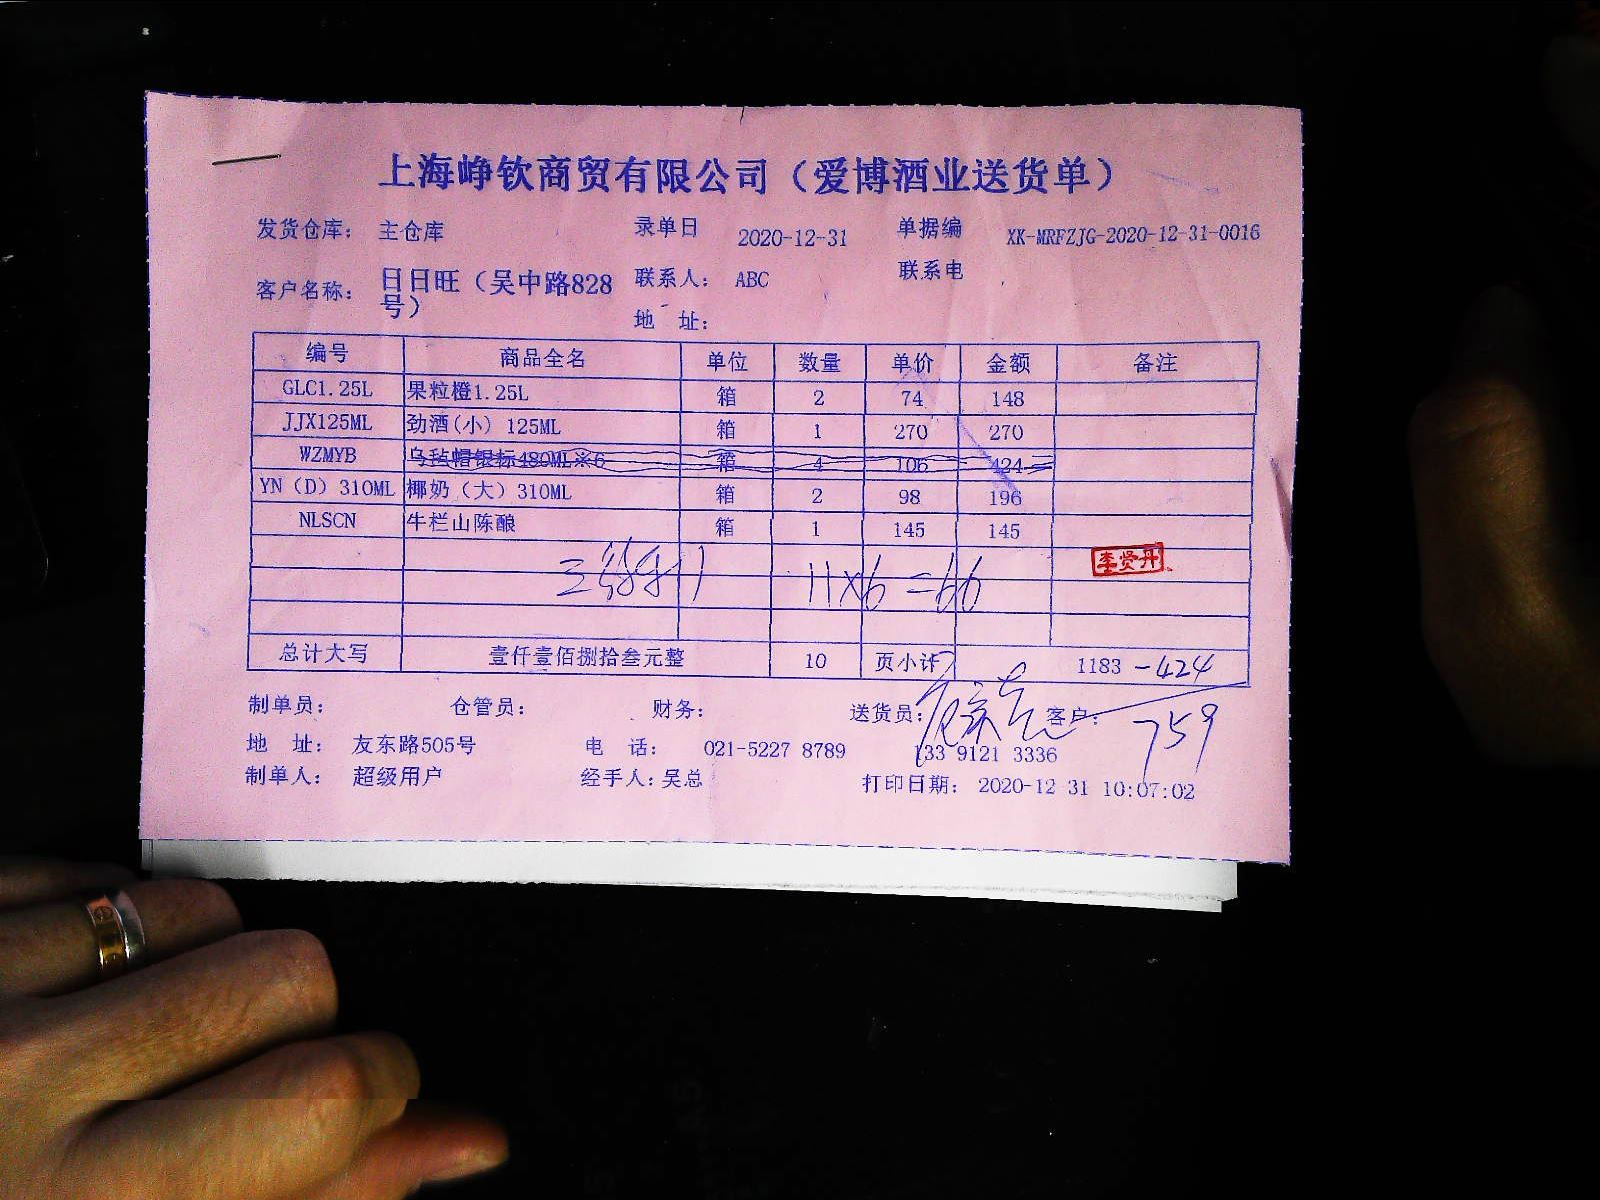 上海峥钦商贸有限公司（爱博酒业送货单）
发货仓库： 主仓库 录单日 2020-12-31 单据编 XK-MRFZJG-2020-12-31-0016
客户名称： 日日旺（吴中路828号） 联系人： ABC 联系电
地 址：
编号 商品全名 单位 数量 单价 金额 备注
GLC1.25L 果粒橙1.25L 箱 2 74 148
JJX125ML 劲酒(小) 125ML 箱 1 270 270
WZMYB 乌毡帽银标480ML※6 箱 4 106 424
YN（D）310ML 椰奶（大）310ML 箱 2 98 196
NLSCN 牛栏山陈酿 箱 1 145 145
李贤丹
11×6=66
总计大写 壹仟壹佰捌拾叁元整 10 页小计 1183 -424
制单员： 仓管员： 财务： 送货员： 客户： 759
地 址： 友东路505号 电 话： 021-5227 8789 133 9121 3336
制单人： 超级用户 经手人：吴总 打印日期： 2020-12 31 10:07:02